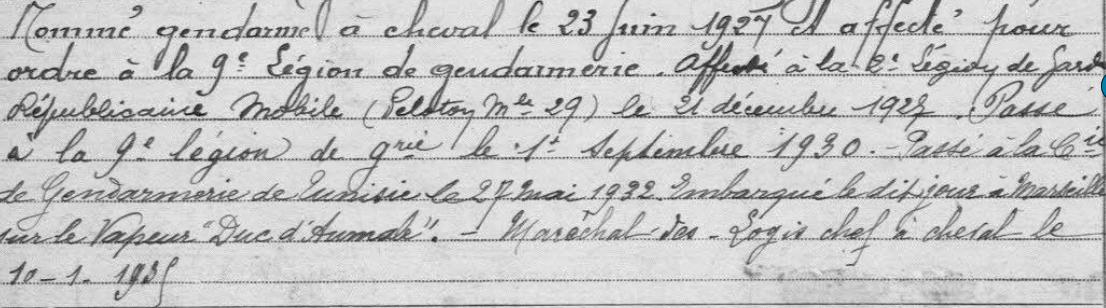 Nommé gendarme à cheval le 23 juin 1927 et affecté pour
ordre à la 9e Légion de gendarmerie. Affecté à la 2e Légion de Garde
Républicaine Mobile (Peloton Mle 29) le 21 décembre 1927. Passé
à la 9e légion de grie le 1er septembre 1930. - Passé à la Cie
de Gendarmerie de Tunisie le 27 mai 1932. Embarqué le dit jour à Marseille
sur le Vapeur "Duc d'Aumale". - Maréchal-des-Logis chef à cheval le
10-1-1935